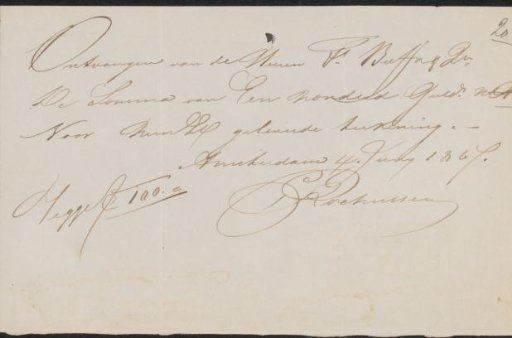 20
Ontvangen van de Heeren F. Buffa & Zn
De Somma van Een honderd Guld.
Voor hun geleverde teekening. —
Amsterdam 4 Juny 1867.
Zegge ƒ 100.=
C Rochussen